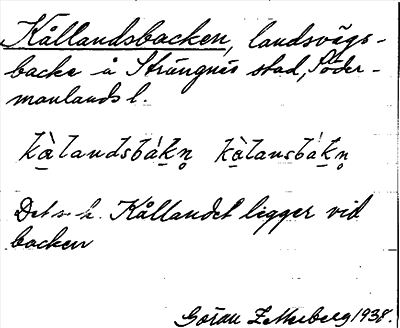 Kållandsbacken, landsvägs-
backe å Strängnäs stad, Söder-
manlands l.
kàlandsbákn̥ kàlansbákn̥
Det s. k. Kållandet ligger vid
backen
Göran Zetterberg 1938.